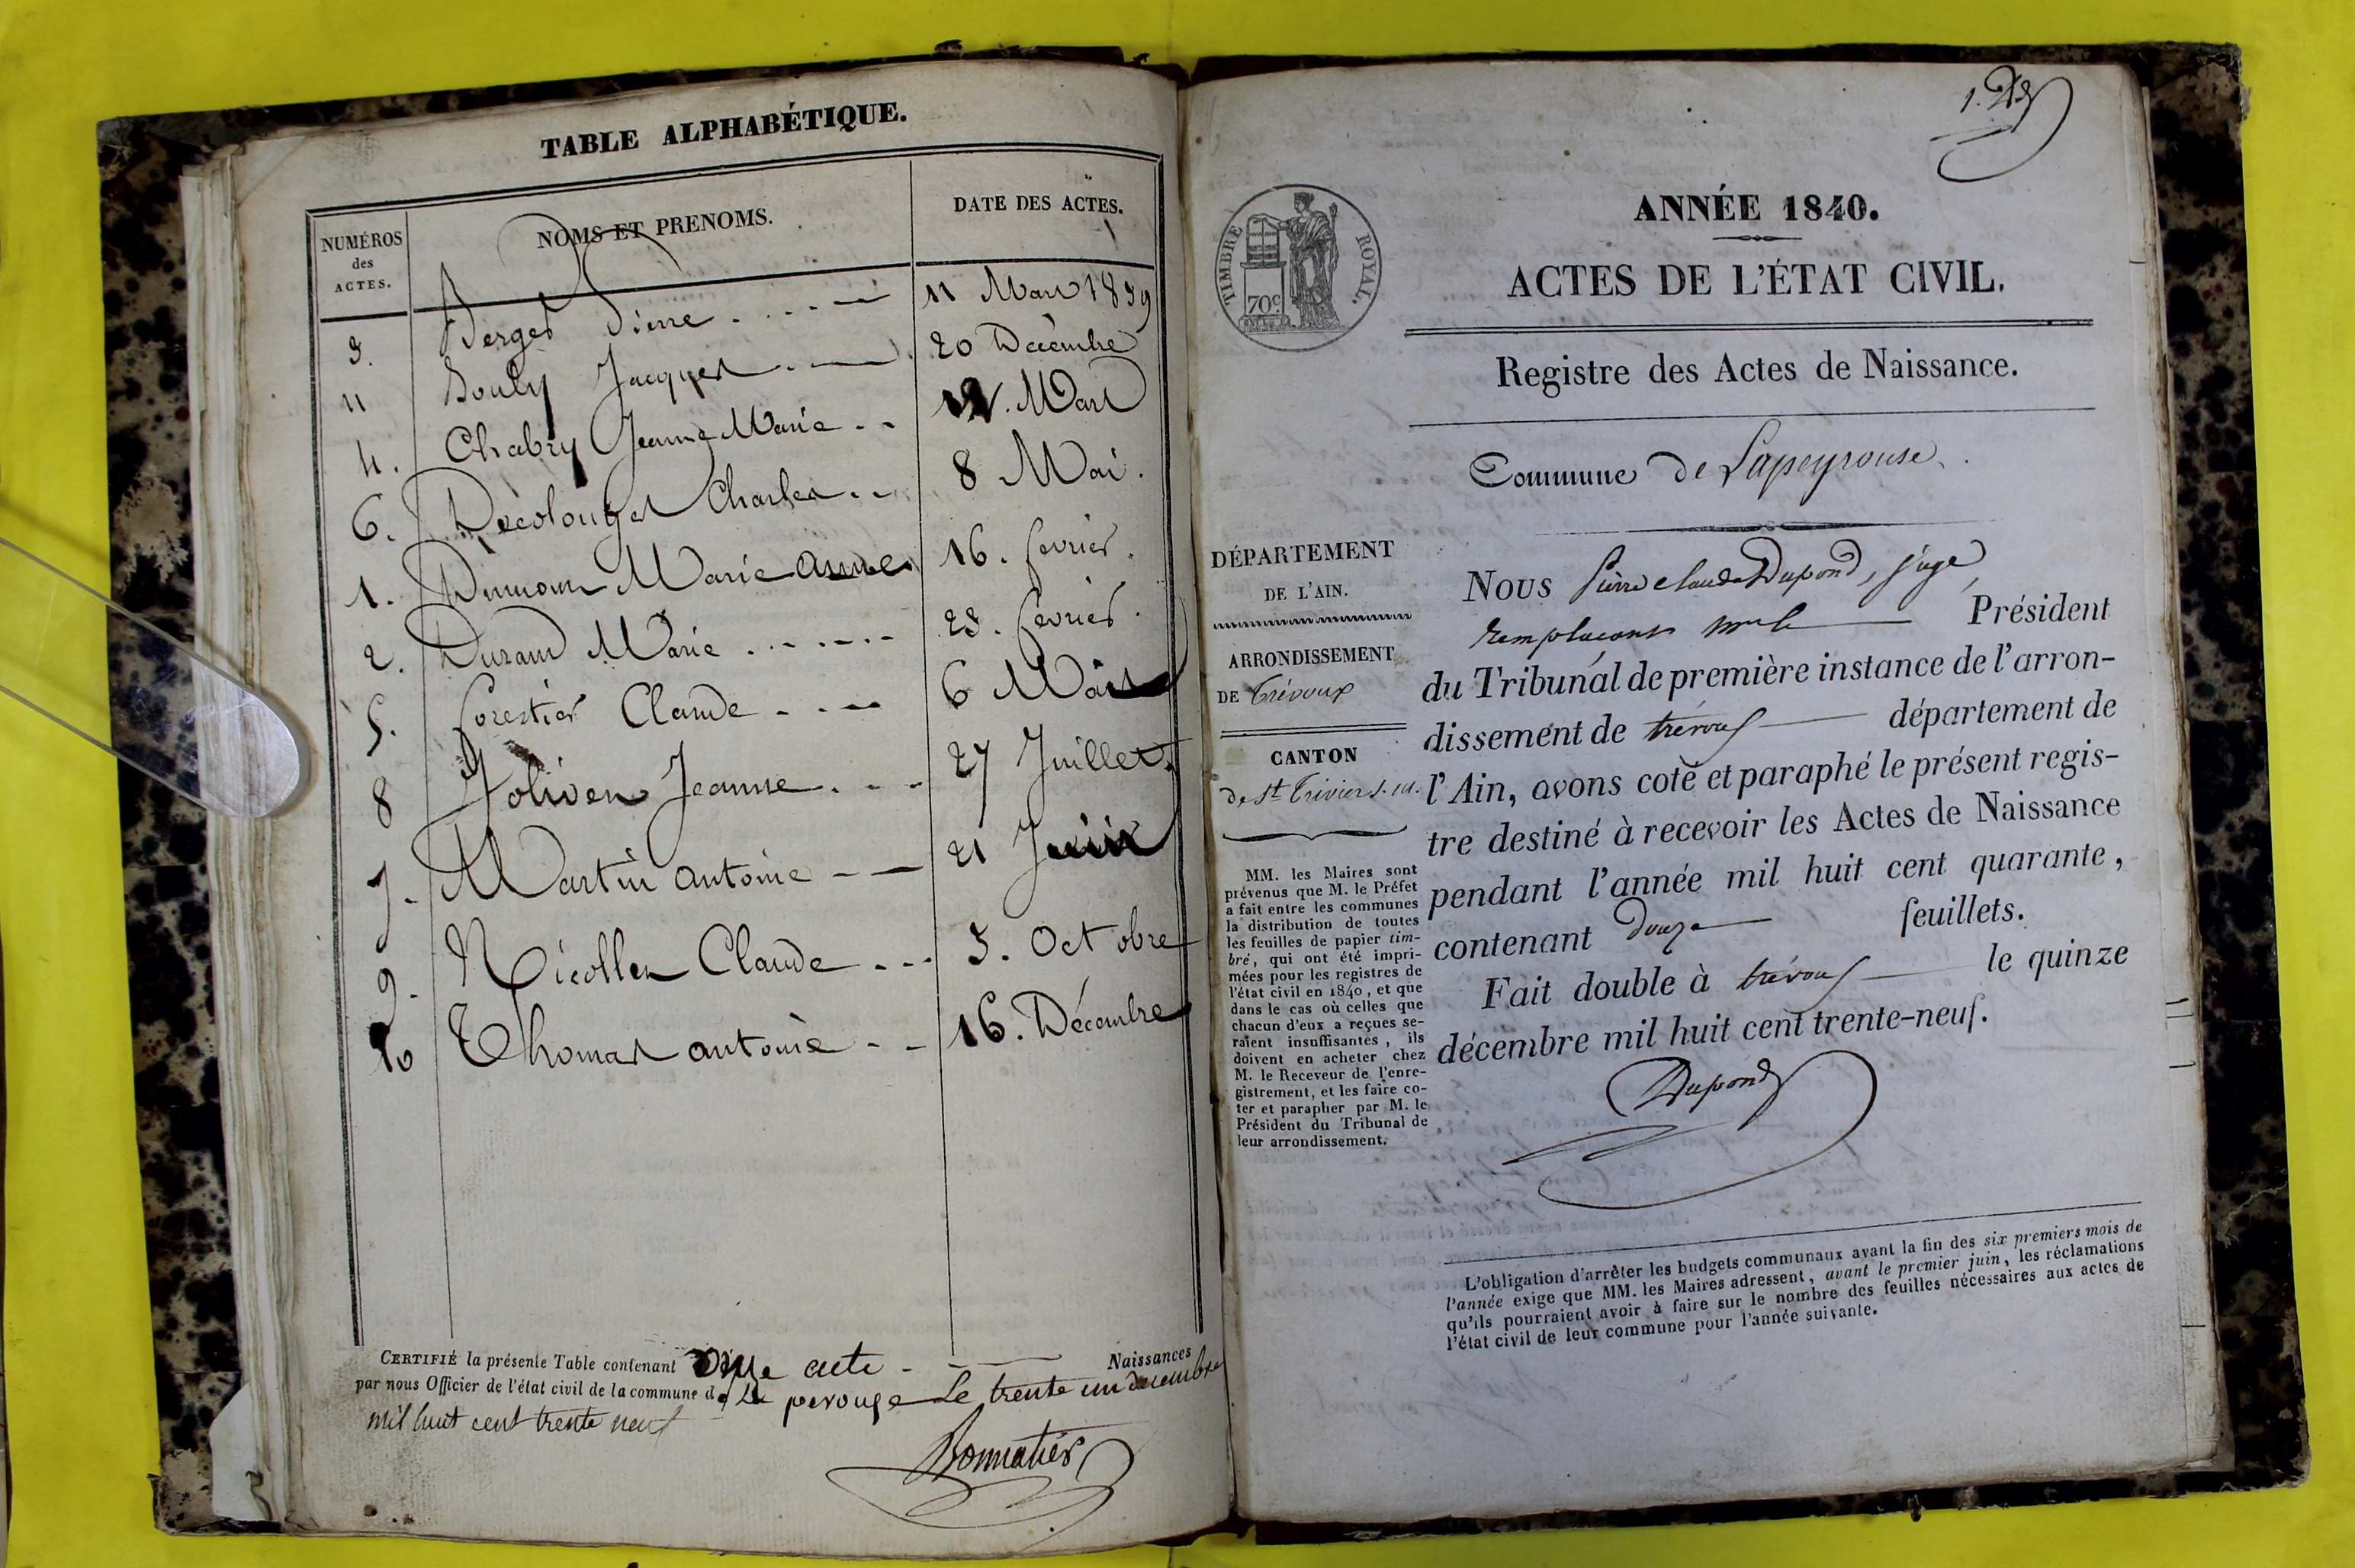 TABLE ALPHABÉTIQUE.
NUMÉROS des ACTES.
NOMS ET PRENOMS.
DATE DES ACTES.
3. Berger Pierre 11 Mars 1839
11 Bouly Jacques 20 Décembre
4. Chabry Jeanne Marie Mars
6. Decolonges Charles 8 Mai.
1. Marie Anne 16. fevrier.
2. Durand Marie 28. fevrier.
5. forestier Claude 6 Mai
8 Jolivet Jeanne 27 Juillet.
7. Martin antoine 21 Juin
9. Nicollet Claude 3. Octobre
10 Thomas antoine 16. Décembre
CERTIFIÉ la présente Table contenant onze acte Naissances
par nous Officier de l'état civil de la commune de La perouse Le trente un decembre
mil huit cent trente neuf
Bonnatier
1.
TIMBRE ROYAL.
70c
ANNÉE 1840.
ACTES DE L'ÉTAT CIVIL.
Registre des Actes de Naissance.
Commune de Lapeyrouse.
DÉPARTEMENT
DE L'AIN.
ARRONDISSEMENT
DE Trévoux
CANTON
de St Trivier s. m.
MM. les Maires sont
prévenus que M. le Préfet
a fait entre les communes
la distribution de toutes
les feuilles de papier tim-
bré, qui ont été impri-
mées pour les registres de
l'état civil en 1840, et que
dans le cas où celles que
chacun d'eux a reçues se-
raient insuffisantes, ils
doivent en acheter chez
M. le Receveur de l'enre-
gistrement, et les faire co-
ter et parapher par M. le
Président du Tribunal de
leur arrondissement.
Nous Pierre claude Dupond, juge,
remplaçant mr le Président
du Tribunal de première instance de l'arron-
dissement de trévoux département de
l'Ain, avons coté et paraphé le présent regis-
tre destiné à recevoir les Actes de Naissance
pendant l'année mil huit cent quarante,
contenant Douze feuillets.
Fait double à trévoux le quinze
décembre mil huit cent trente-neuf.
Dupond
L'obligation d'arrêter les budgets communaux avant la fin des six premiers mois de
l'année exige que MM. les Maires adressent, avant le premier juin, les réclamations
qu'ils pourraient avoir à faire sur le nombre des feuilles nécessaires aux actes de
l'état civil de leur commune pour l'année suivante.